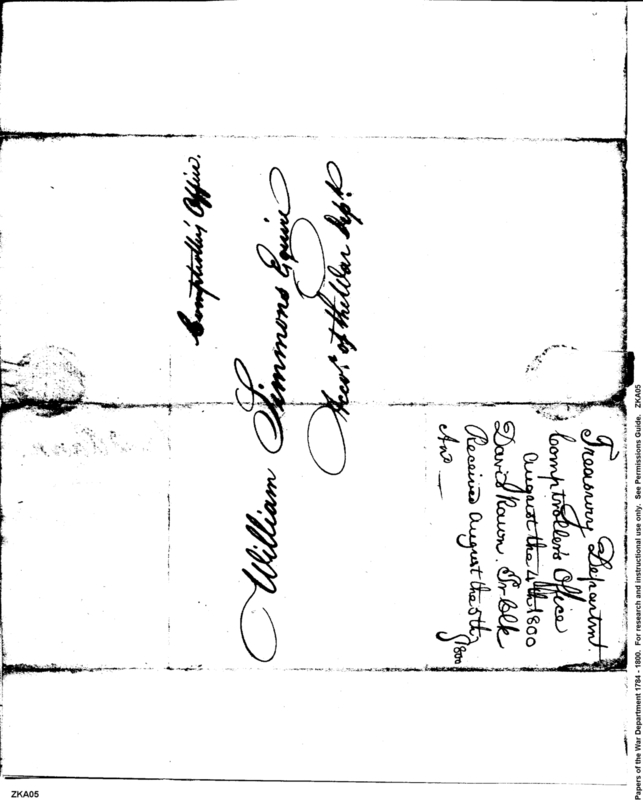 Comptrollers Office.
William Simmons Esquire
Acco.t of the War Dep.t
Treasury Departmt
Comptrollers Office
August the 4th 1800
David Rawn. Pr Clk
Received August the 5th
1800
Ans —
Papers of the War Department 1784 - 1800. For research and instructional use only. See Permissions Guide. ZKA05
ZKA05